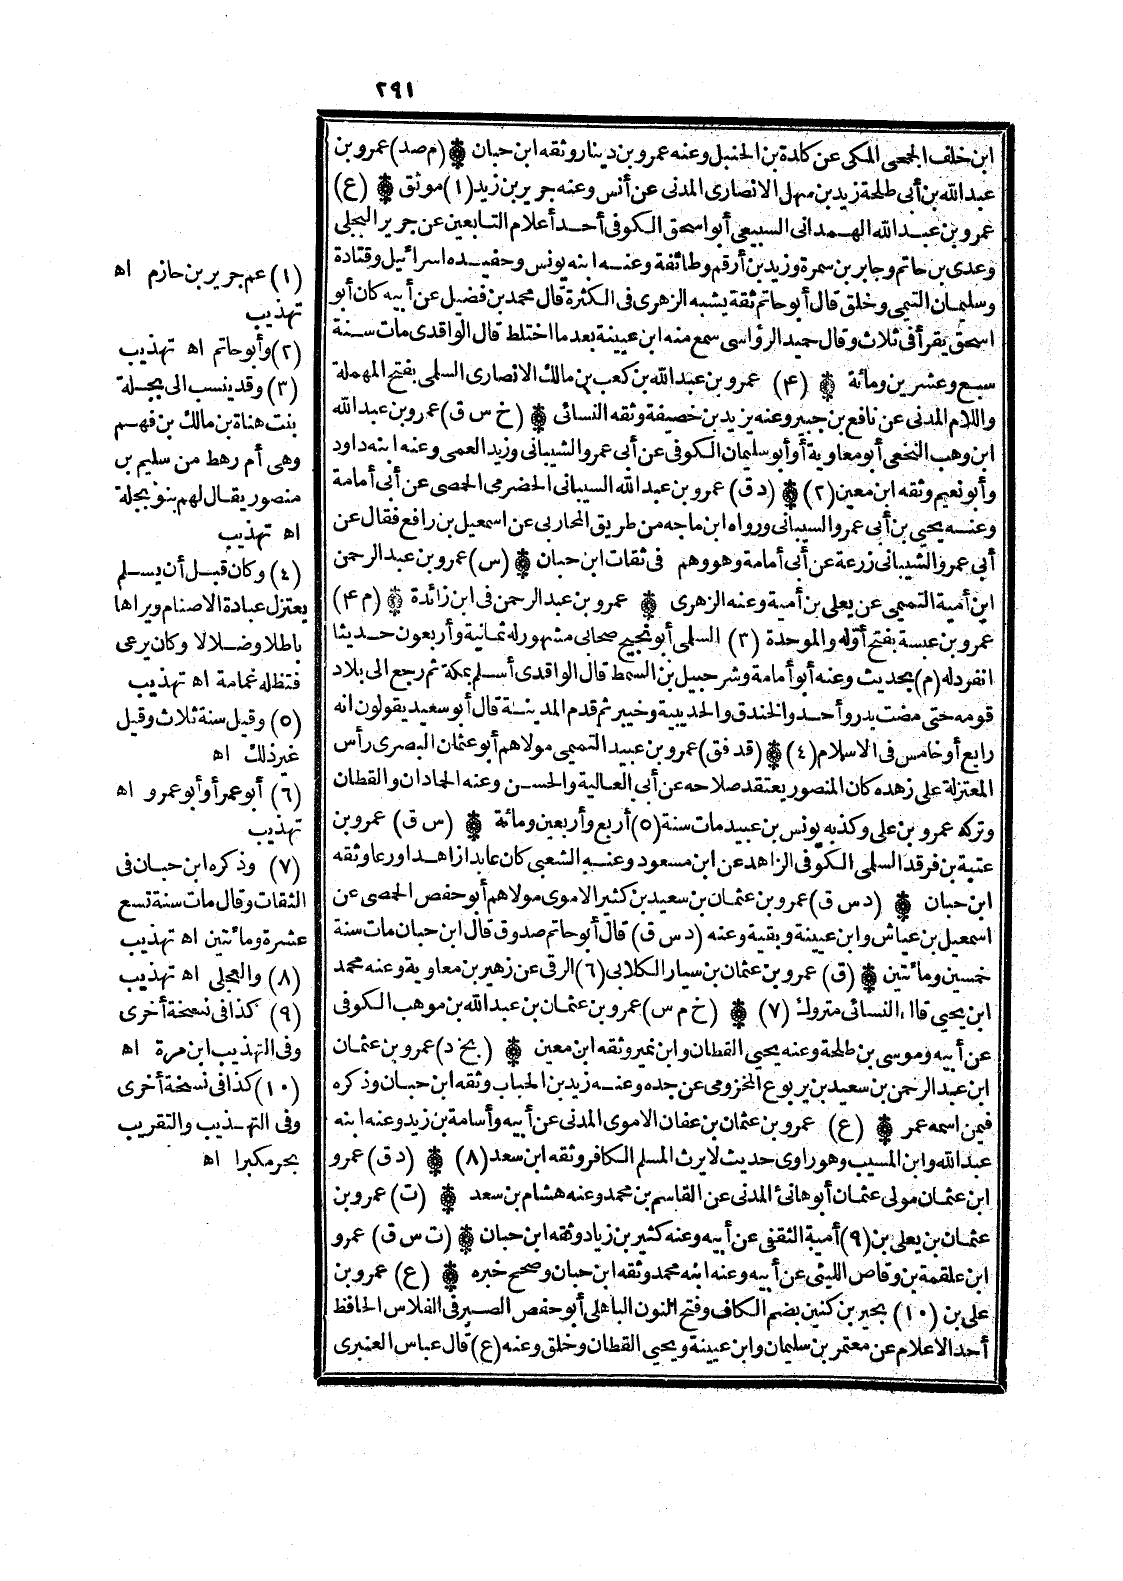 ٢٩١
ابن خلف الجمحى المكى عن كلدة بن الحنبل وعنه عمرو بن دينار وثقه ابن حبان (م صد) عمرو بن
عبد الله بن أبى طلحة زيد بن سهل الانصارى المدنى عن أنس وعنه جرير بن زيد (١) موثق (ع)
عمرو بن عبد الله الهمدانى السبيعى أبو اسحق الكوفى أحد أعلام التابعين عن جرير البجلى
وعدى بن حاتم وجابر بن سمرة وزيد بن أرقم وطائفة وعنه ابنه يونس وحفيده اسرائيل وقتادة
وسليمان التيمى وخلق قال أبو حاتم ثقة يشبه الزهرى فى الكثرة قال محمد بن فضيل عن أبيه كان أبو
اسحق يقرأ فى ثلاث وقال حميد الرؤاسى سمع منه ابن عيينة بعد ما اختلط قال الواقدى مات سنة
سبع وعشرين ومائة (٤) عمرو بن عبد الله بن كعب بن مالك الانصارى السلمى بفتح المهملة
واللام المدنى عن نافع بن جبير وعنه يزيد بن خصيفة وثقه النسائى (خ س ق) عمرو بن عبد الله
ابن وهب النخعى أبو معاوية أو أبو سليمان الكوفى عن أبى عمرو الشيبانى وزيد العمى وعنه ابنه داود
وأبو نعيم وثقه ابن معين (٢) (د ق) عمرو بن عبد الله السيبانى الحضرمى الحمصى عن أبى أمامة
وعنه يحيى بن أبى عمرو السيبانى ورواه ابن ماجه من طريق المحاربى عن اسمعيل بن رافع فقال عن
أبى عمرو الشيبانى زرعة عن أبى أمامة وهو وهم فى ثقات ابن حبان (س) عمرو بن عبد الرحمن
ابن أمية التميمى عن يعلى بن أمية وعنه الزهرى عمرو بن عبد الرحمن فى ابن زائدة (م ٤)
عمرو بن عبسة بفتح أوله والموحدة (٣) السلمى أبو نجيح صحابى مشهور له ثمانية وأربعون حديثا
انفرد له (م) بحديث وعنه أبو أمامة وشرحبيل بن السمط قال الواقدى أسلم بمكة ثم رجع الى بلاد
قومه حتى مضت بدر وأحد والخندق والحديبية وخيبر ثم قدم المدينة قال أبو سعيد يقولون انه
رابع أو خامس فى الاسلام (٤) (قد فق) عمرو بن عبيد التميمى مولاهم أبو عثمان البصرى رأس
المعتزلة على زهده كان المنصور يعتقد صلاحه عن أبى العالية والحسن وعنه الحمادان والقطان
وتركه عمرو بن على وكذبه يونس بن عبيد مات سنة (٥) أربع وأربعين ومائة (س ق) عمرو بن
عتبة بن فرقد السلمى الكوفى الزاهد عن ابن مسعود وعنه الشعبى كان عابدا زاهدا ورعا وثقه
ابن حبان (د س ق) عمرو بن عثمان بن سعيد بن كثير الاموى مولاهم أبو حفص الحمصى عن
اسمعيل بن عياش وابن عيينة وبقية وعنه (د س ق) قال أبو حاتم صدوق قال ابن حبان مات سنة
خمسين ومائتين (ق) عمرو بن عثمان بن سيار الكلابى (٦) الرقى عن زهير بن معاوية وعنه محمد
ابن يحيى قال النسائى متروك (٧) (خ م س) عمرو بن عثمان بن عبد الله بن موهب الكوفى
عن أبيه وموسى بن طلحة وعنه يحيى القطان وابن نمير وثقه ابن معين (بخ د) عمرو بن عثمان
ابن عبد الرحمن بن سعيد بن يربوع المخزومى عن جده وعنه زيد بن الحباب وثقه ابن حبان وذكره
فيمن اسمه عمر (ع) عمرو بن عثمان بن عفان الاموى المدنى عن أبيه وأسامة بن زيد وعنه ابنه
عبد الله وابن المسيب وهو راوى حديث لا يرث المسلم الكافر وثقه ابن سعد (٨) (د ق) عمرو
ابن عثمان مولى عثمان أبو هانئ المدنى عن القاسم بن محمد وعنه هشام بن سعد (ت) عمرو بن
عثمان بن يعلى بن (٩) أمية الثقفى عن أبيه وعنه كثير بن زياد وثقه ابن حبان (ت س ق) عمرو
ابن علقمة بن وقاص الليثى عن أبيه وعنه ابنه محمد وثقه ابن حبان وصحح خبره (ع) عمرو بن
على بن (١٠) بحير بن كنين بضم الكاف وفتح النون الباهلى أبو حفص الصيرفى الفلاس الحافظ
أحد الاعلام عن معتمر بن سليمان وابن عيينة ويحيى القطان وخلق وعنه (ع) قال عباس العنبرى
(١) عم جرير بن حازم اه
تهذيب
(٢) وأبو حاتم اه تهذيب
(٣) وقد ينسب الى بجلة
بنت هناة بن مالك بن فهم
وهى أم رهط من سليم بن
منصور يقال لهم بنو بجلة
اه تهذيب
(٤) وكان قبل أن يسلم
يعتزل عبادة الاصنام ويراها
باطلا وضلالا وكان يرعى
فتظله غمامة اه تهذيب
(٥) وقيل سنة ثلاث وقيل
غير ذلك اه
(٦) أبو عمر أو أبو عمرو اه
تهذيب
(٧) وذكره ابن حبان فى
الثقات وقال مات سنة تسع
عشرة ومائتين اه تهذيب
(٨) والعجلى اه تهذيب
(٩) كذا فى نسخة أخرى
وفى التهذيب ابن مرة اه
(١٠) كذا فى نسخة أخرى
وفى التهذيب والتقريب
بحر مكبرا اه